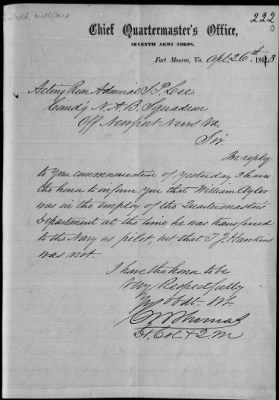 222
Chief Quartermaster's Office,
SEVENTH ARMY CORPS,
Fort Monroe, Va. Apl. 26th 1863
Acting Rear Admiral S. P. Lee
Comd'g N. A. B. Squadron
Off Newport News Va.
Sir.
In reply
to your communication of yesterday I have
the honor to inform you that William
was in the employ of the Quartermaster's
Department at the time he was transferred
to the Navy as pilot, but that Hankins
was not.
I have the honor to be
Very Respectfully
Your Obdt. Svt.
Lt. Col. & Q.M.